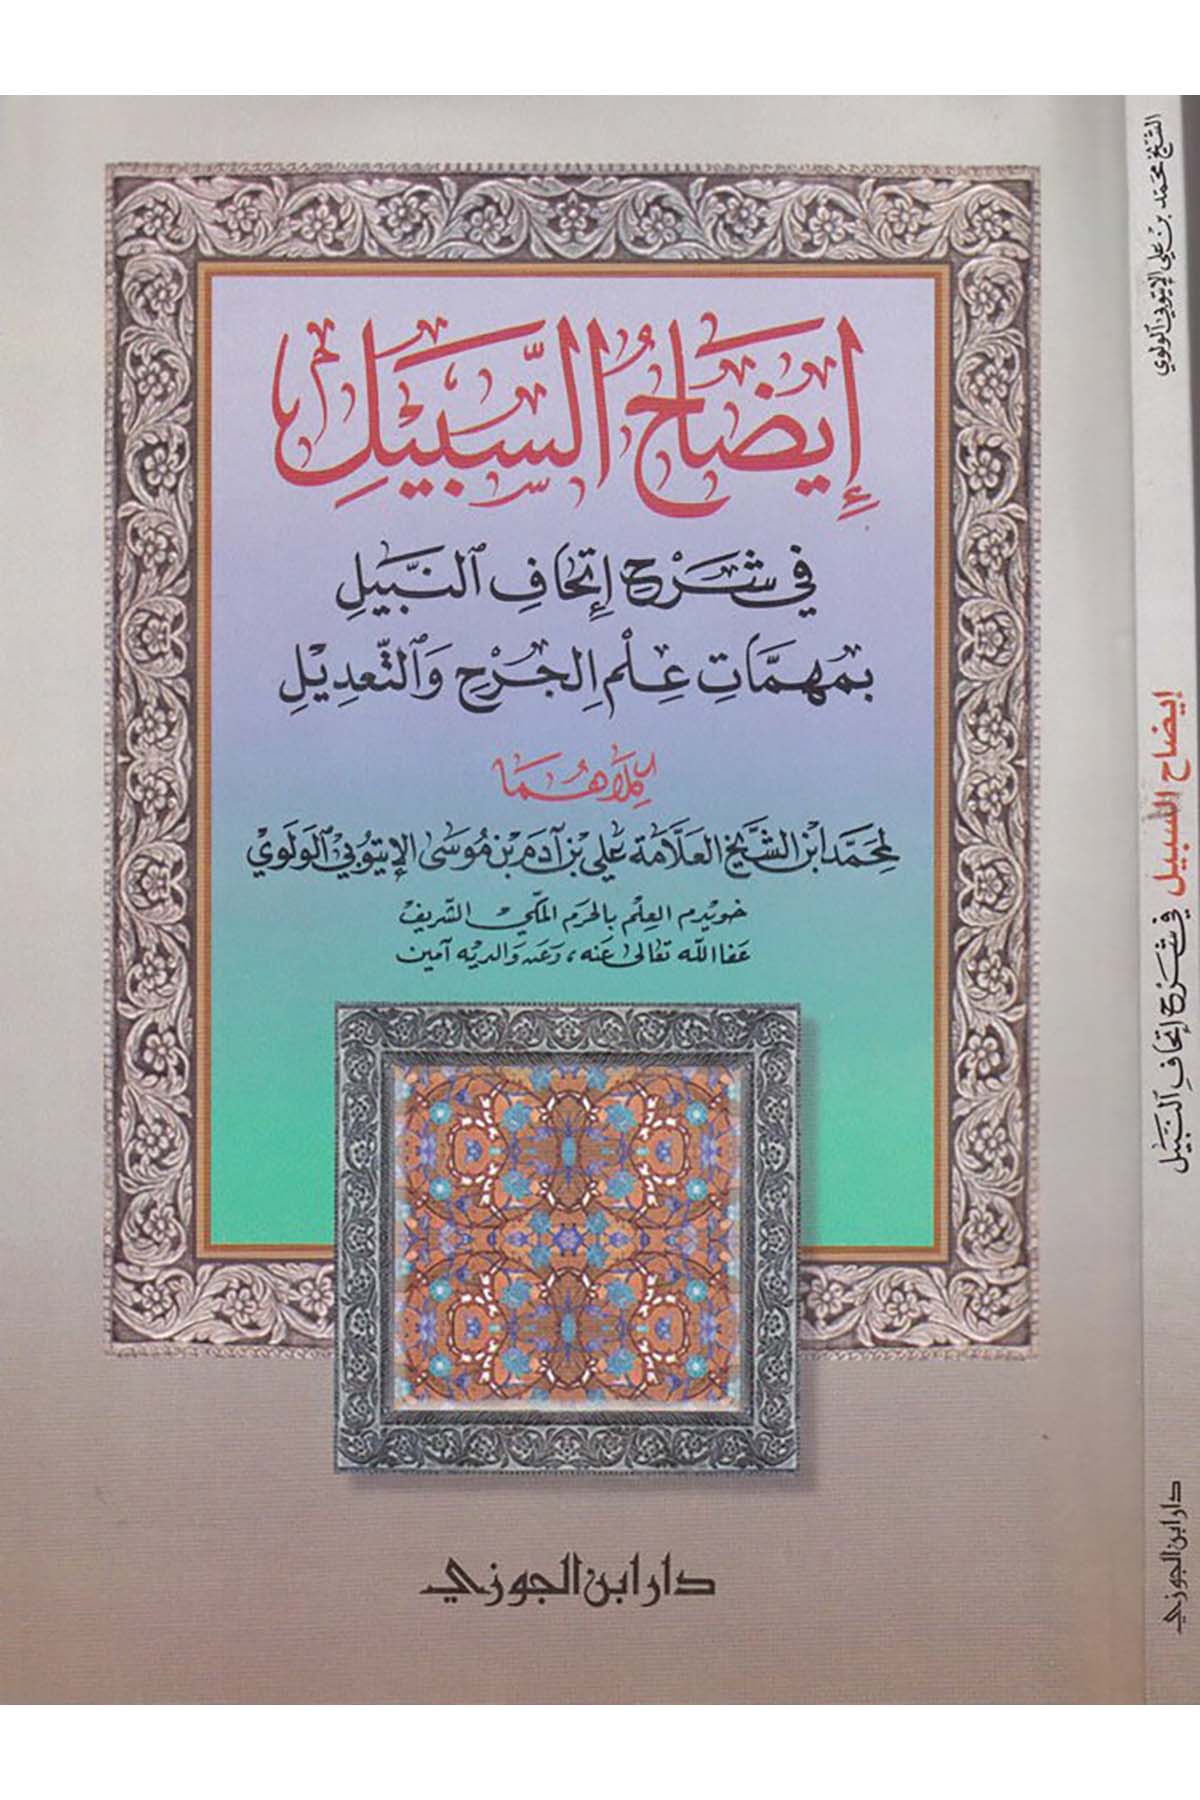 إِيضَاحُ السَّبِيلِ
فِي شَرْحِ إِتْحَافِ ٱلنَّبِيلِ
بِمُهِمَّاتِ عِلْمِ الجَرْحِ وَالتَّعْدِيلِ
كِلَاهُمَا
لمحَمَّد ابْن الشَّيْخ العَلَّامَة عَلي بْن آدَم بْن مُوسَى الإتيُوبي الوَلَوِي
خويدم العِلْم بالحرَم المكّي الشّريف
عَفا اللّه تعَالى عَنه، وَعَن وَالديه آمين
دار ابن الجوزي
الشَّيْخ محمّد بن علي الإتيوبي الوَلَوي
إيضاح السبيل في شَرْح إتحَافِ النّبيل
دار ابن الجوزي